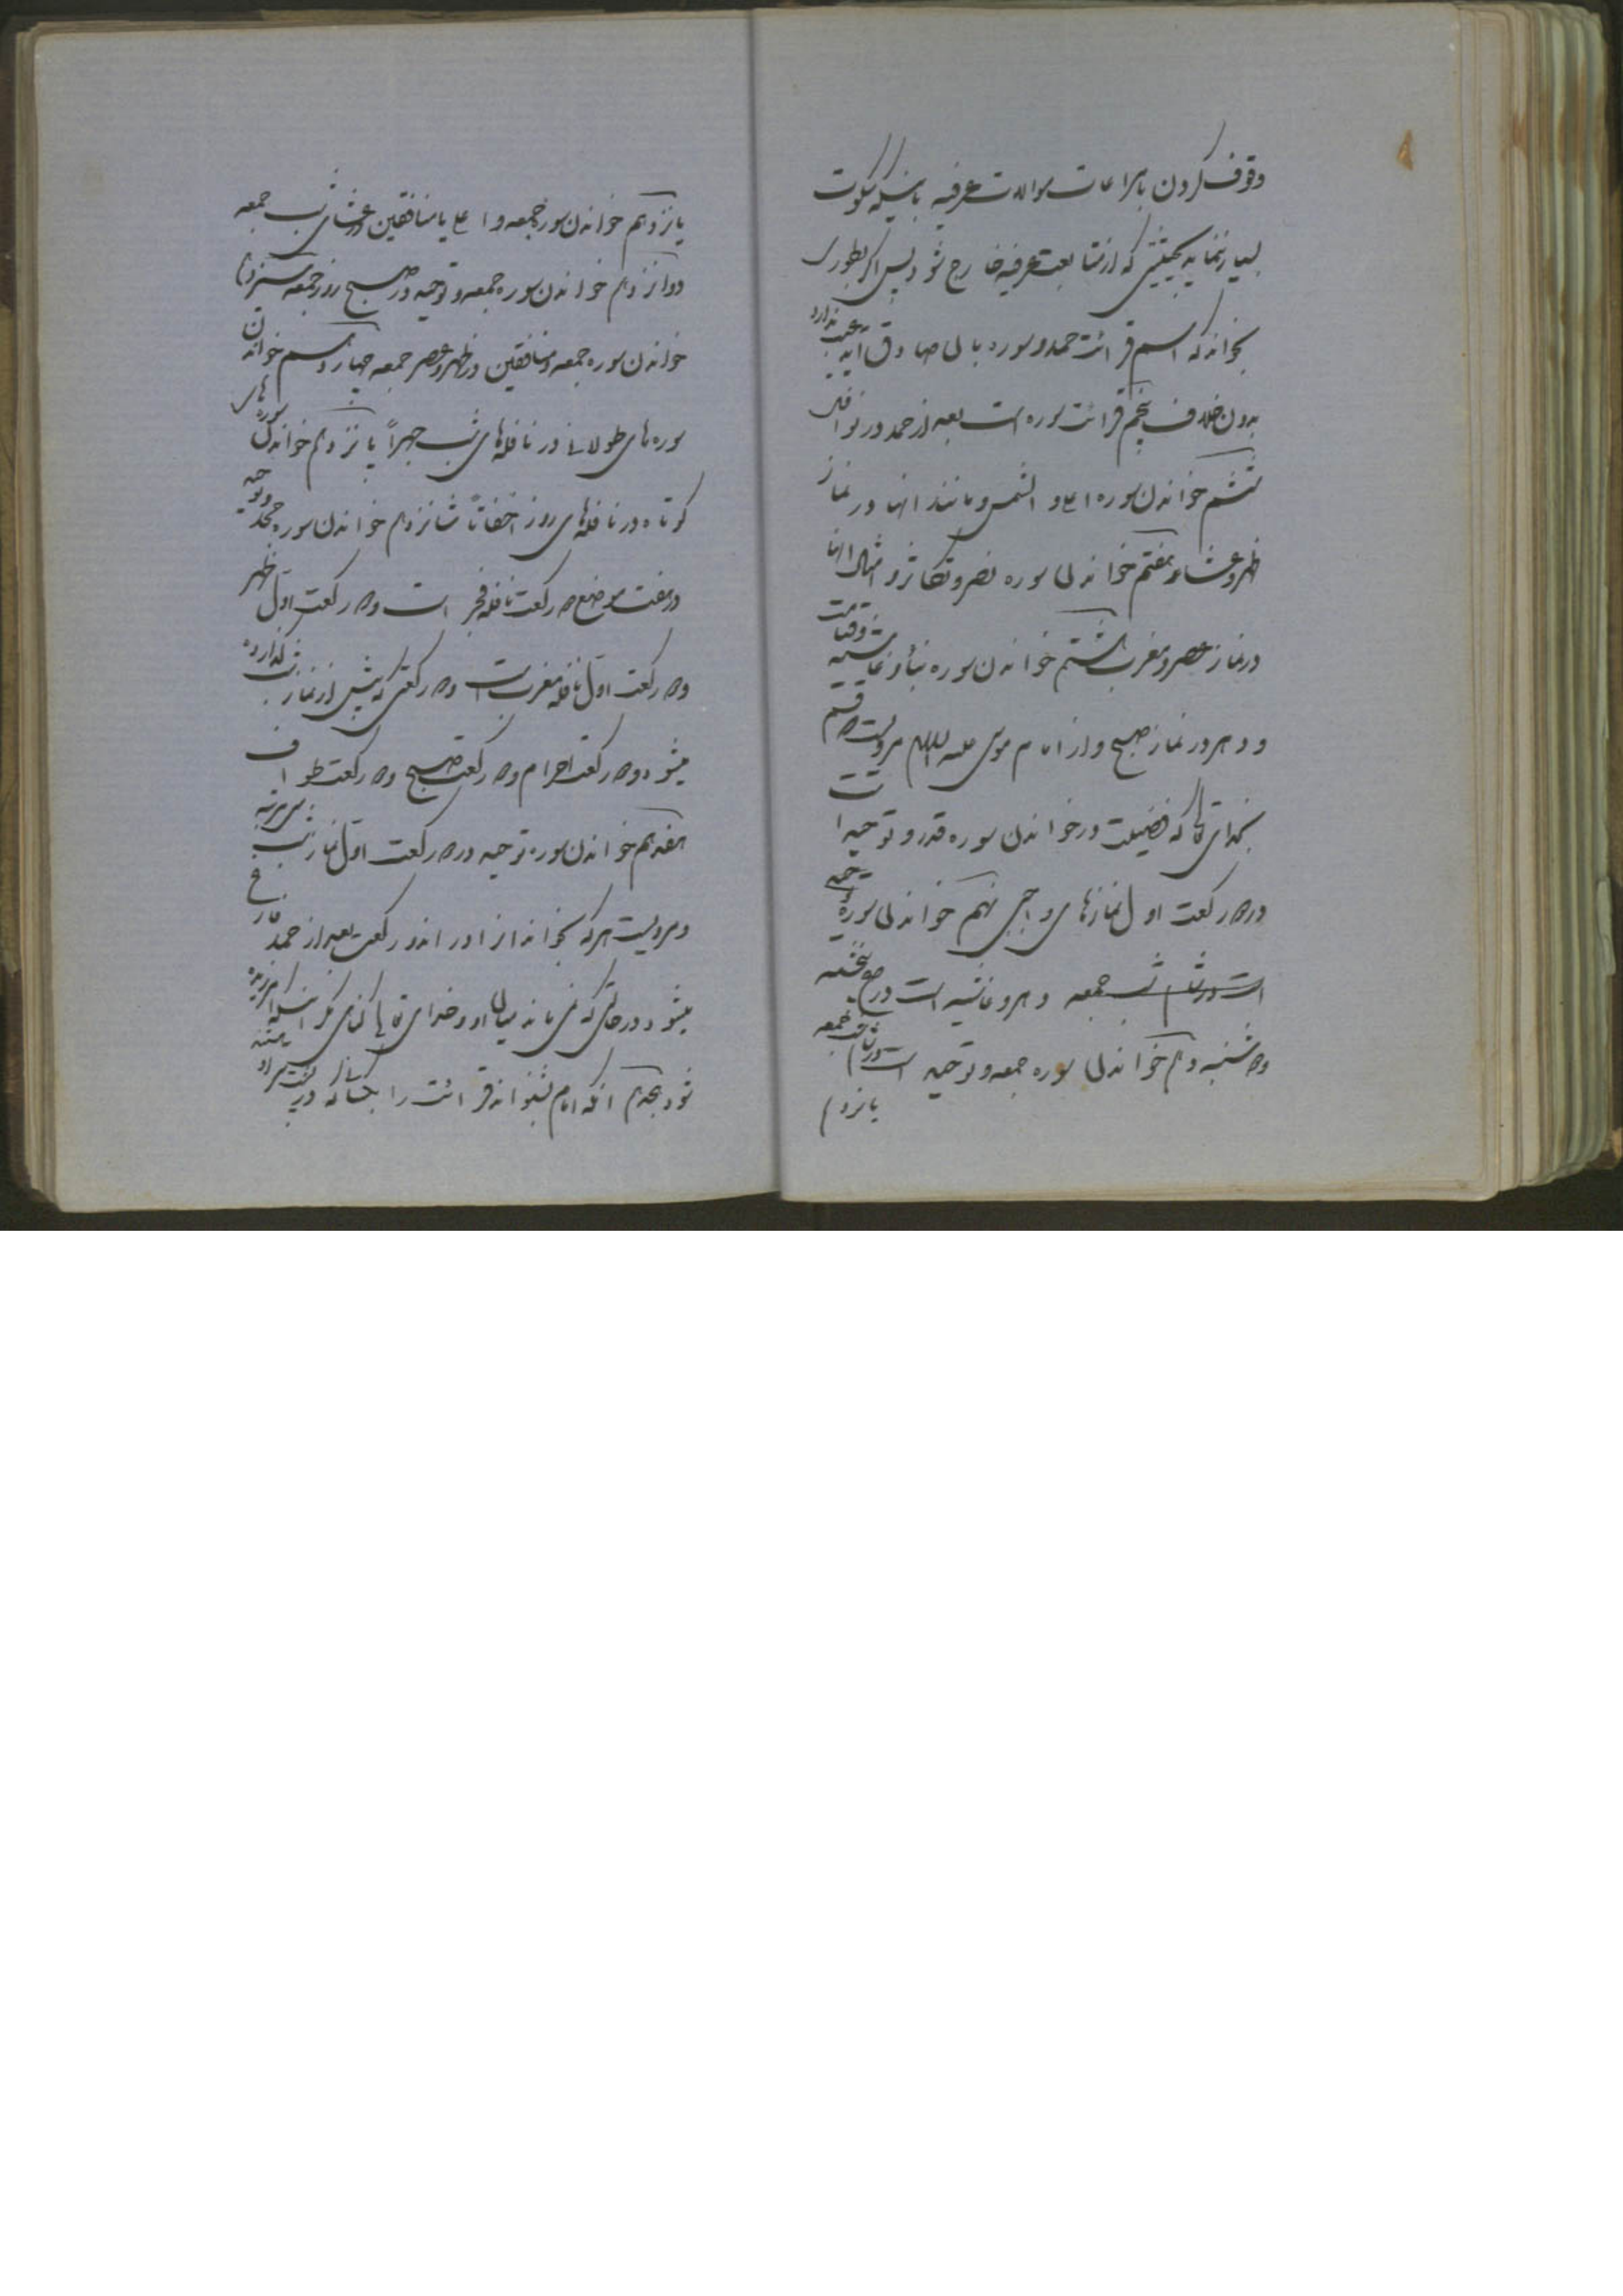 وقوف کردن بامراعات موالات عرفیه باینکه سکوت
بسیار ننماید بحیثیتی که از متابعت عرفیه خارج شود پس اگر بطوری
بخواند که اسم قرائت حمد و سوره بان صادق اید عیب ندارد
بدون خلاف پنجم قرائت سوره است بعد از حمد در نوافل
ششم خواندن سوره اعلی و الشمس و مانند انها در نماز
ظهر و عشاء هفتم خواندن سوره نصر و تکاثر و امثال انها
در نماز عصر و مغرب هشتم خواندن سوره نبأ و غاشیه و قیامت
و دهر در نماز صبح و از امام موسی علیه السلام مرویست قسم
بخدای تعالی که فضیلت در خواندن سوره قدر و توحید است
در دو رکعت اول نمازهای واجبی نهم خواندن سورهٔ
است در شام شب جمعه دهر و غاشیه است در صبح پنجشنبه
دوشنبه دهم خواندن سوره جمعه و توحید است در شام شب جمعه
یازدهم
یازدهم خواندن سوره جمعه و اعلی یا منافقین در عشای شب جمعه
دوازدهم خواندن سوره جمعه و توحید در صبح روز جمعه سیزدهم
خواندن سوره جمعه و منافقین در ظهر و عصر جمعه چهاردهم خواندن
سوره های طولانی در نافلهای شب جهراً پانزدهم خواندن سوره های
کوتاه در نافلهای روز اخفاتاً شانزدهم خواندن سوره جحد و توحید
در هفت موضع دو رکعت نافله فجر است و دو رکعت اول ظهر
و دو رکعت اول نافله مغرب است و دو رکعتی که پیش از نماز شب گذارده
میشود و دو رکعت احرام و دو رکعت صبح و دو رکعت طواف
هفدهم خواندن سوره توحید در دو رکعت اول نماز شب سی مرتبه
و مرویست هر که بخواند انرا در اندو رکعت بعد از حمد فارغ
میشود در حالتی که نمی ماند میان او و خدای تعالی گناهی مگر اینکه امرزیده
شود هجدهم انکه امام بشنواند قرائت را بکسانیکه در پشت سر او